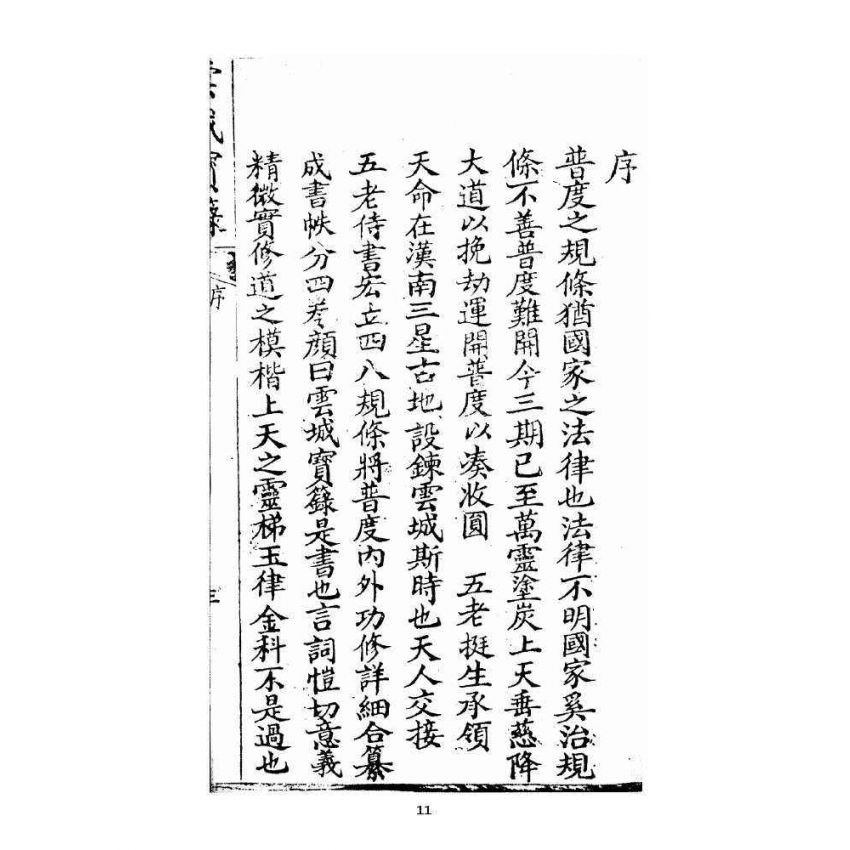 序
普度之規條猶國家之法律也法律不明國家奚治規
條不善普度難開今三期已至萬靈塗炭上天垂慈降
大道以挽劫運開普度以湊收圓　五老挺生承領
天命在漢南三星古地設鍊雲城斯時也天人交接
五老侍書宏立四八規條將普度內外功修詳細合纂
成書帙分四卷顔曰雲城寶籙是書也言詞愷切意義
精微實修道之模楷上天之靈梯玉律金科不是過也
雲城寶籙
序
三
11